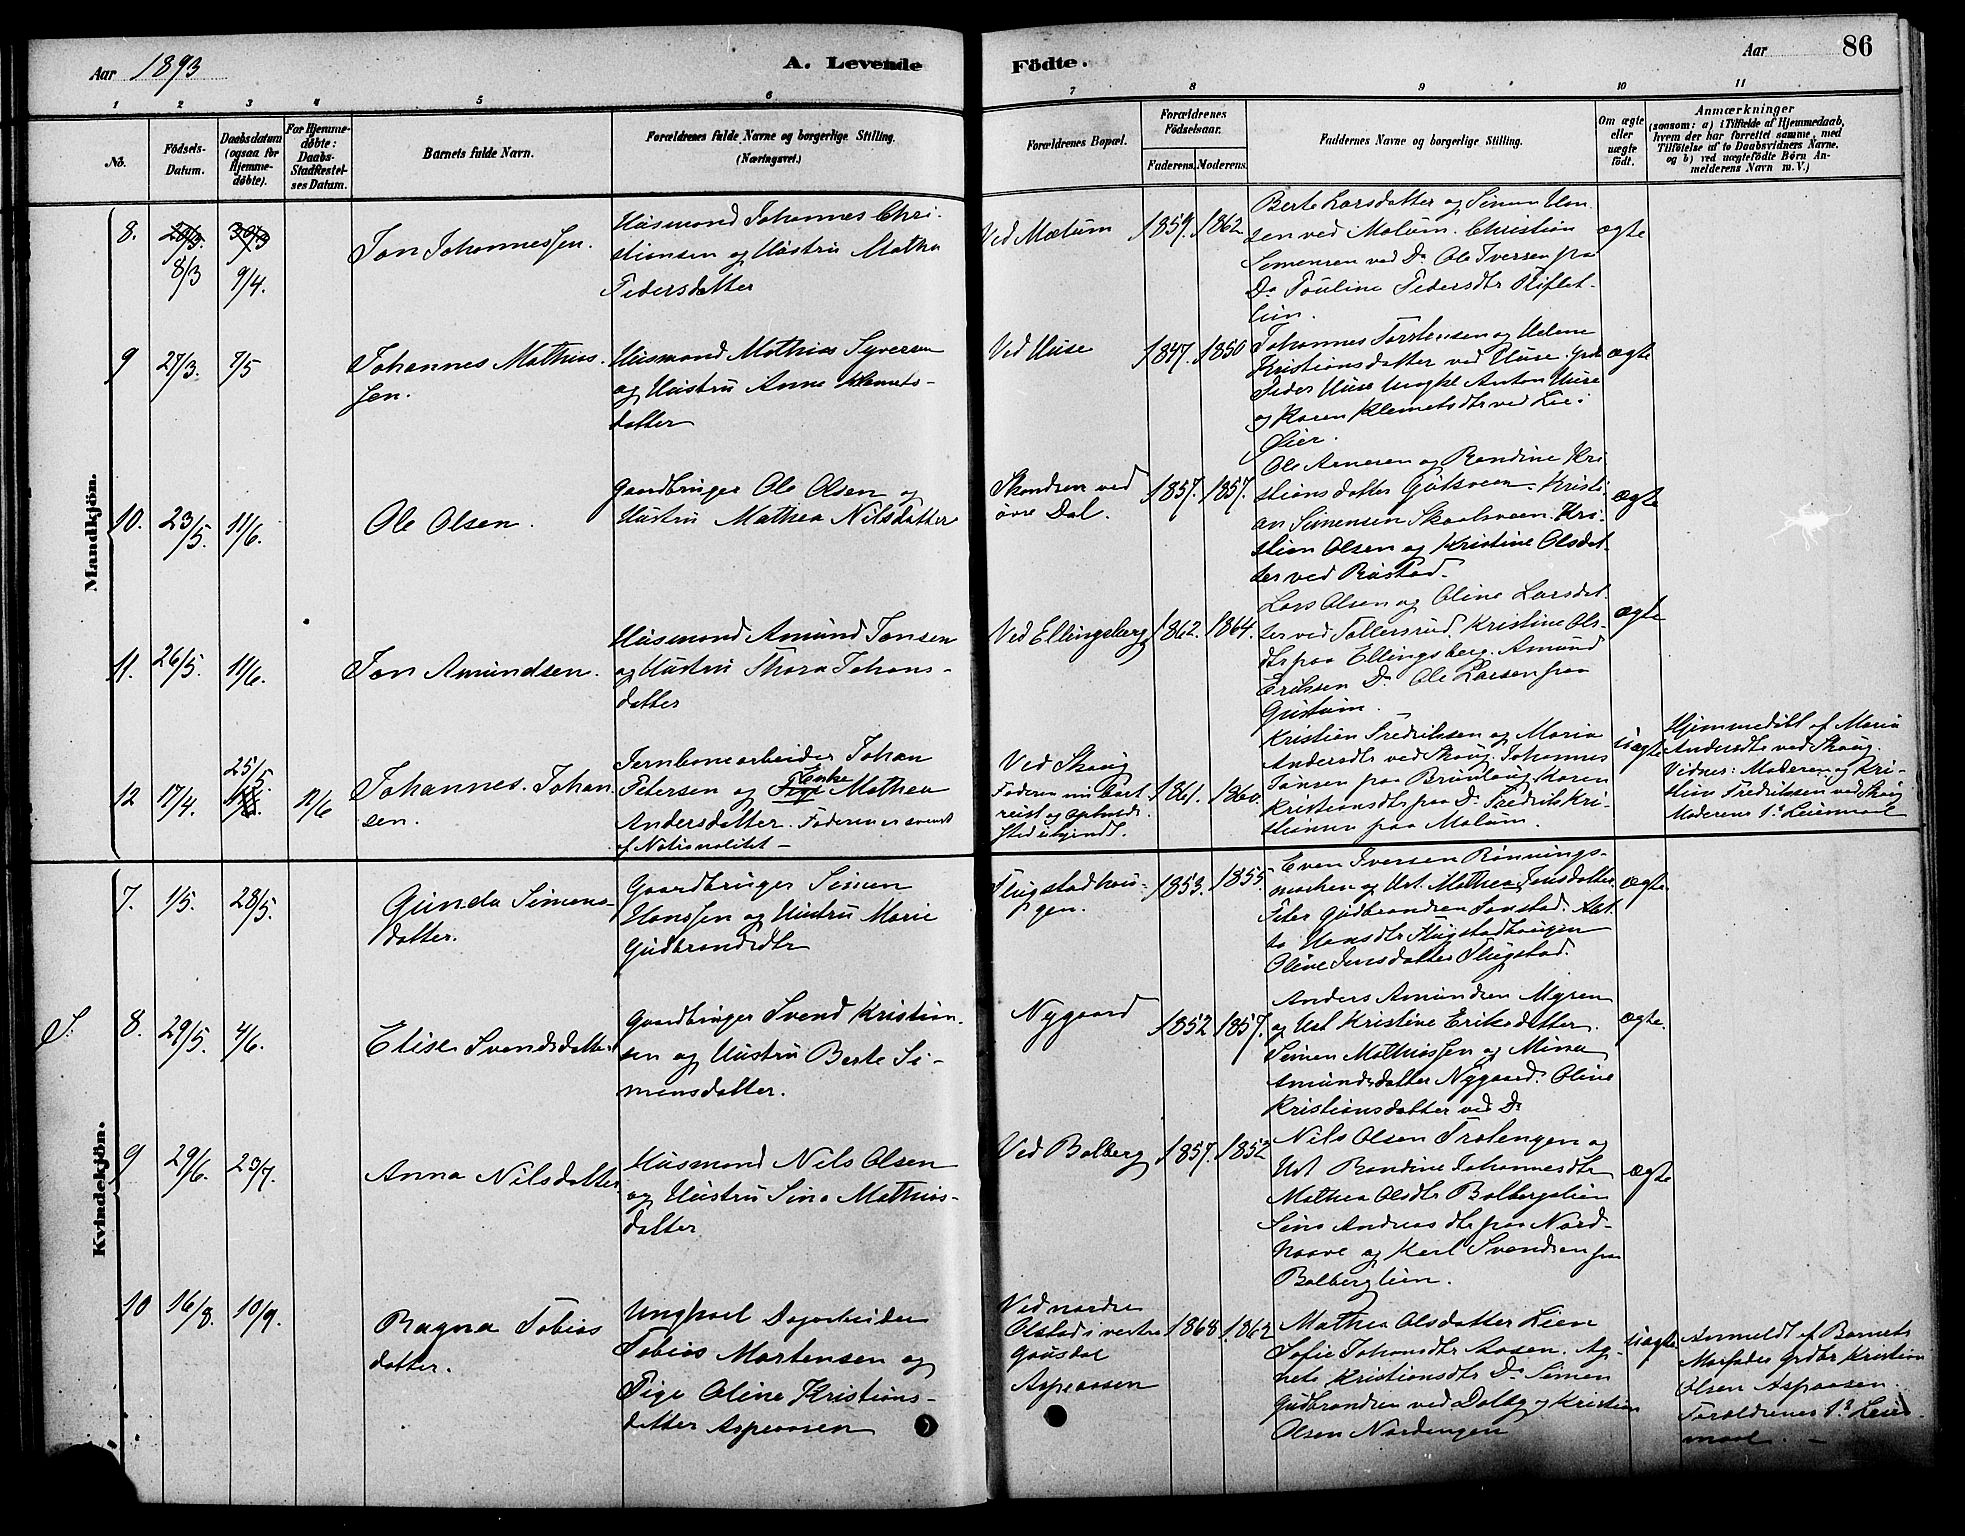 Aar 1893
A. Levende Födte.
Aar
86
1 2 3 4 5 6 7 8 9 10 11
No.
Födsels-
Datum.
Daabsdatum
(ogsaa for
Hjemme-
döbte).
For Hjemme-
döbte:
Daabs-
Stadfæstel-
ses Datum.
Barnets fulde Navn.
Forældrenes fulde Navne og borgerlige Stilling.
(Næringsvei.)
Forældrenes Bopæl.
Forældrenes
Födselsaar.
Faderens. Moderens.
Faddernes Navne og borgerlige Stilling.
Om ægte
eller
uægte
født.
Anmærkninger
(saasom: a) i Tilfælde af Hjemmedaab,
hvem der har forrettet samme, med
Tilföielse af to Daabsvidners Navne,
og b) ved uægtefödte Börn An-
melderens Navn m.V.)
Mandkjön.
8.
20/3.
8/3
30/3
9/4.
Jon Johannessen.
Husmand Johannes Chri-
stiansen og Hustru Mathea
Pedersdatter
Ved Mælum
1859. 1862.
Berte Larsdatter og Simen Han-
sen ved Mælum. Christian
Simensen ved Do Ole Iversen paa
Do Pauline Pedersdtr Riflet-
lien.
ægte
9
27/3.
7/5
Johannes Mathias-
sen.
Husmand Mathias Syversen
og Hustru Anne Klemets-
datter
Ved Huse
1847. 1850
Johannes Torstensen og Helene
Kristiansdatter ved Huse. Grdr
Peder Huse Ungkl Anton Huse
og Karen Klemetsdtr ved Lie i
Øier.
ægte
10.
23/5.
11/6.
Ole Olsen.
Gaardbruger Ole Olsen og
Hustru Mathea Nilsdatter
Skondsen ved
øvre Dal.
1857. 1857.
Ole Arnesen og Randine Kri-
stiansdatter Götsveen. Kristi-
an Simensen Skaalsveen. Kri-
stian Olsen og Kristine Olsdat-
ter ved Rustad.
ægte
11.
26/5.
11/6.
Jon Amundsen.
Husmand Amund Jonsen
og Hustru Thora Johans-
datter
Ved Ellingsberg
1862. 1864.
Lars Olsen og Oline Larsdat-
ter ved Tollersrud. Kristine Ols-
dtr paa Ellingsberg. Amund
Eriksen Do Ole Larsen paa
Gustum.
ægte
12
17/4.
25/5.
11/6
Johannes Johan-
sen.
Jernbanearbeider Johan
Petersen og Pige Enke Mathea
Andersdatter. Faderen er svensk
af Nationalitet –
Ved Skoug
Faderen nu bort-
reist og Opholds-
sted ubekjendt.
1861. 1860.
Kristian Fredriksen og Maria
Andersdtr ved Skoug. Johannes
Jansen paa Brunlaug Karen
Kristiansdtr paa Do Fredrik Kri-
stiansen paa Mælum.
uægte
Hjemmedöbt af Maria
Andersdtr ved Skoug.
Vidnes: Moderen og Kri-
stian Fredriksen ved Skoug
Moderens 1ste Leiermaal
Kvindekjön.
7.
1/5.
28/5.
Gunda Simens-
datter.
Gaardbruger Simen
Hanssen og Hustru Marie
Gudbrandsdtr
Flugstadhau-
gen.
1853. 1855.
Even Iversen Rönnings-
moen og Ust. Mathea Jensdatter
Peter Gudbrandsen Sonstad. Aet-
te Hansdtr Flugstadhaugen
Oline Jensdatter Flugstad.
ægte
S.
8.
29/5.
4/6.
Elise Svendsdatter
Gaardbruger Svend Kristian-
sen og Hustru Berte Si-
mensdatter.
Nygaard
1852 1857.
Anders Amundsen Myren
og Ust Kristine Eriksdatter.
Simen Mathiassen og Mina
Amundsdatter Nygaard. Oline
Kristiansdatter ved Do
ægte.
9
29/6.
23/7.
Anna Nilsdatter
Husmand Nils Olsen
og Hustru Sina Mathias-
datter
Ved Bolberg
1857. 1852
Nils Olsen Trolengen og
Ust Randine Johannesdtr
Mathea Olsdtr Bolbergslien
Sina Andreasdtr paa Nord-
haave og Karl Svendsen fra
Bolberglien.
ægte
10
16/8.
10/9.
Ragna Tobias
datter.
Ungkarl Dagarbeider
Tobias Martensen og
Pige Oline Kristians-
datter Aspeaasen
Ved nordre
Olstad i vestre
Gausdal
Aspeaasen
1868. 1862
Mathea Olsdatter Lien
Sofie Johansdtr Aasen. Ag-
nete Kristiansdtr Do Simen
Gudbrandsen ved Dalby og Kristian
Olsen Nordengen
uægte
Anmeldt af Barnets
Morfader Grdbr Kristian
Olsen Aspaasen.
Forældrenes 1ste Leier-
maal. –